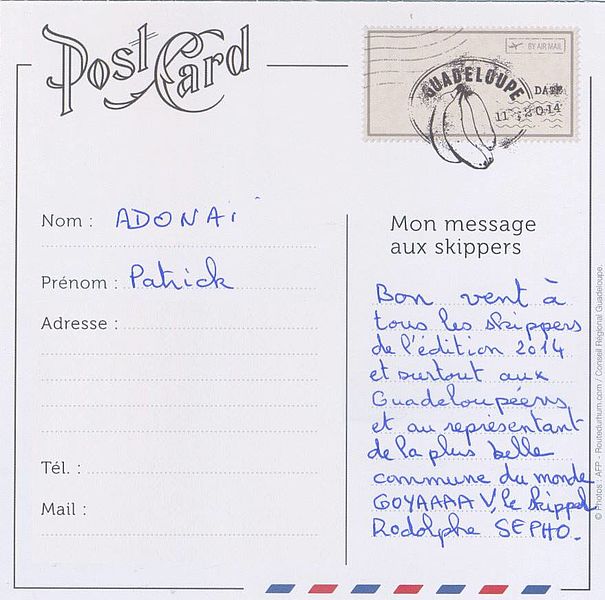 Post Card
BY AIR MAIL
GUADELOUPE
DATE
11 . 2014
Nom : ADONAÏ
Prénom : Patrick
Adresse :
Tél. :
Mail :
Mon message
aux skippers
Bon vent à
tous les skippers
de l'édition 2014
et surtout aux
Guadeloupéens,
et au représentant
de la plus belle
commune du monde
GOYAAAA V, le skipper
Rodolphe SEPHO.
© Photos : AFP - Routedurhum.com / Conseil Régional Guadeloupe.